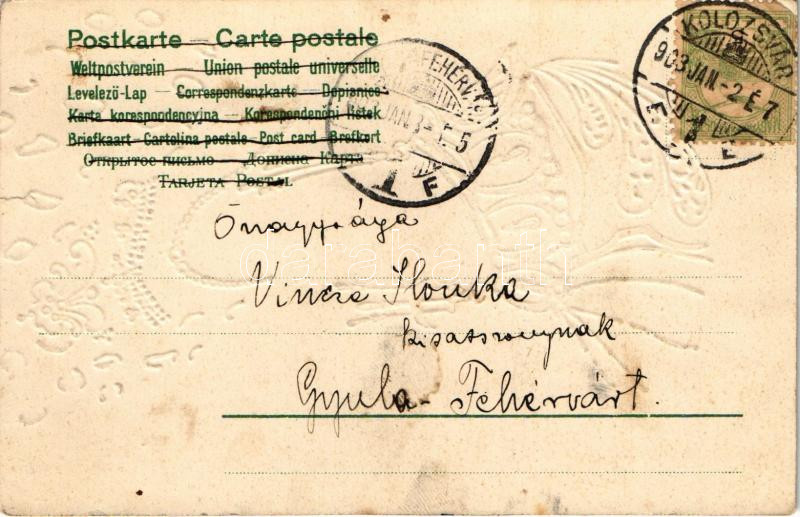 Postkarte — Carte postale
Weltpostverein — Union postale universelle
Levelező-Lap — Correspondenzkarte — Dopisnice
Karta korespondencyjna — Korespondenční lístek
Briefkaart — Cartolina postale — Post card — Brefkort
Открытое письмо — Дописна Карта
Tarjeta Postal
FEHÉRV
KOLOZSVÁR
903 JAN.-2 É.7
Önagysága
Vincze Ilonka
kisasszonynak
Gyula-Fehérvárt.
darabanth